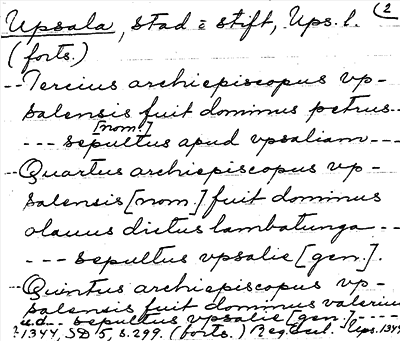 Upsala, stad = stift, Ups. l. (2
(forts.)
-- Tercius archiepiscopus vp-
salensis fuit dominus petrus --
[nom.]
--- sepultus apud vpsaliam ---
-- Quartus archiepiscopus vp-
salensis [nom.] fuit dominus
olauus dictus lambatunga ---
--- sepultus vpsalie [gen.].
-- Quintus archiepiscopus vp-
salensis fuit dominus valerius
--- sepultus vpsalie [gen.] ----
1344, SD 5, s. 299. (forts.) Reg. eccl. Ups. 1344